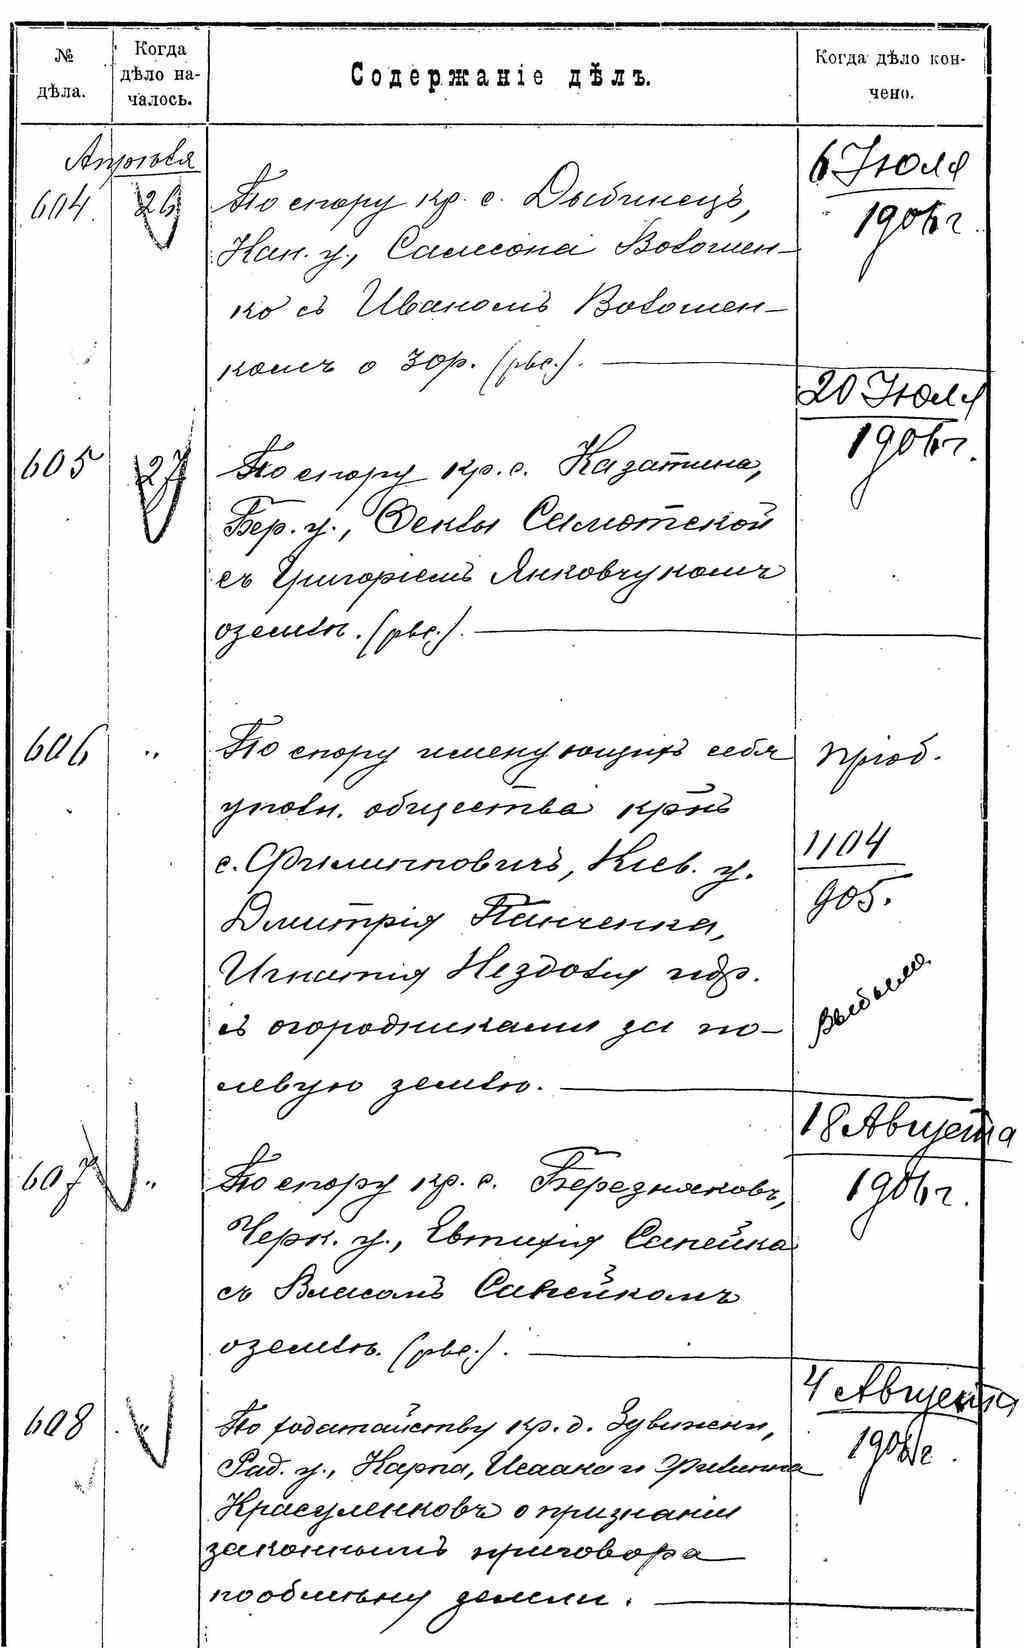 № дѣла.
Когда дѣло на-
чалось.
Содержаніе дѣлъ.
Когда дѣло кон-
чено.
Апрѣля
604. 26
По спору кр. с. Дыбинецъ,
Кан. у., Самсона Волошен-
ко съ Иваномъ Волошен-
комъ о зор. (рвс.).
6 Іюля
1906 г.
605 27
По спору кр. с. Казатина,
Бер. у., Феклы Самотской
съ Григоріемъ Янковчукомъ
о землѣ. (рвс.).
20 Іюля
1906 г.
606 "
По спору именующихъ себя
уполн. общества кр-нъ
с. Филипповичъ, Кіев. у.
Дмитрія Панченка,
Игнатія Нездолія и др.
съ огородниками за по-
левую землю.
пріоб.
1104
905.
Выбыла
607 "
По спору кр. с. Березняковъ,
Черк. у., Евтихія Сапейка
съ Власомъ Сапейкомъ
о землѣ. (рвс.).
18 Августа
1906 г.
608 "
По ходатайству кр. д. Здвижки,
Рад. у., Карпа, Исаака и Филиппа
Красуленковъ о признаніи
законнымъ приговора
по обмѣну земли.
4 Августа
1906 г.